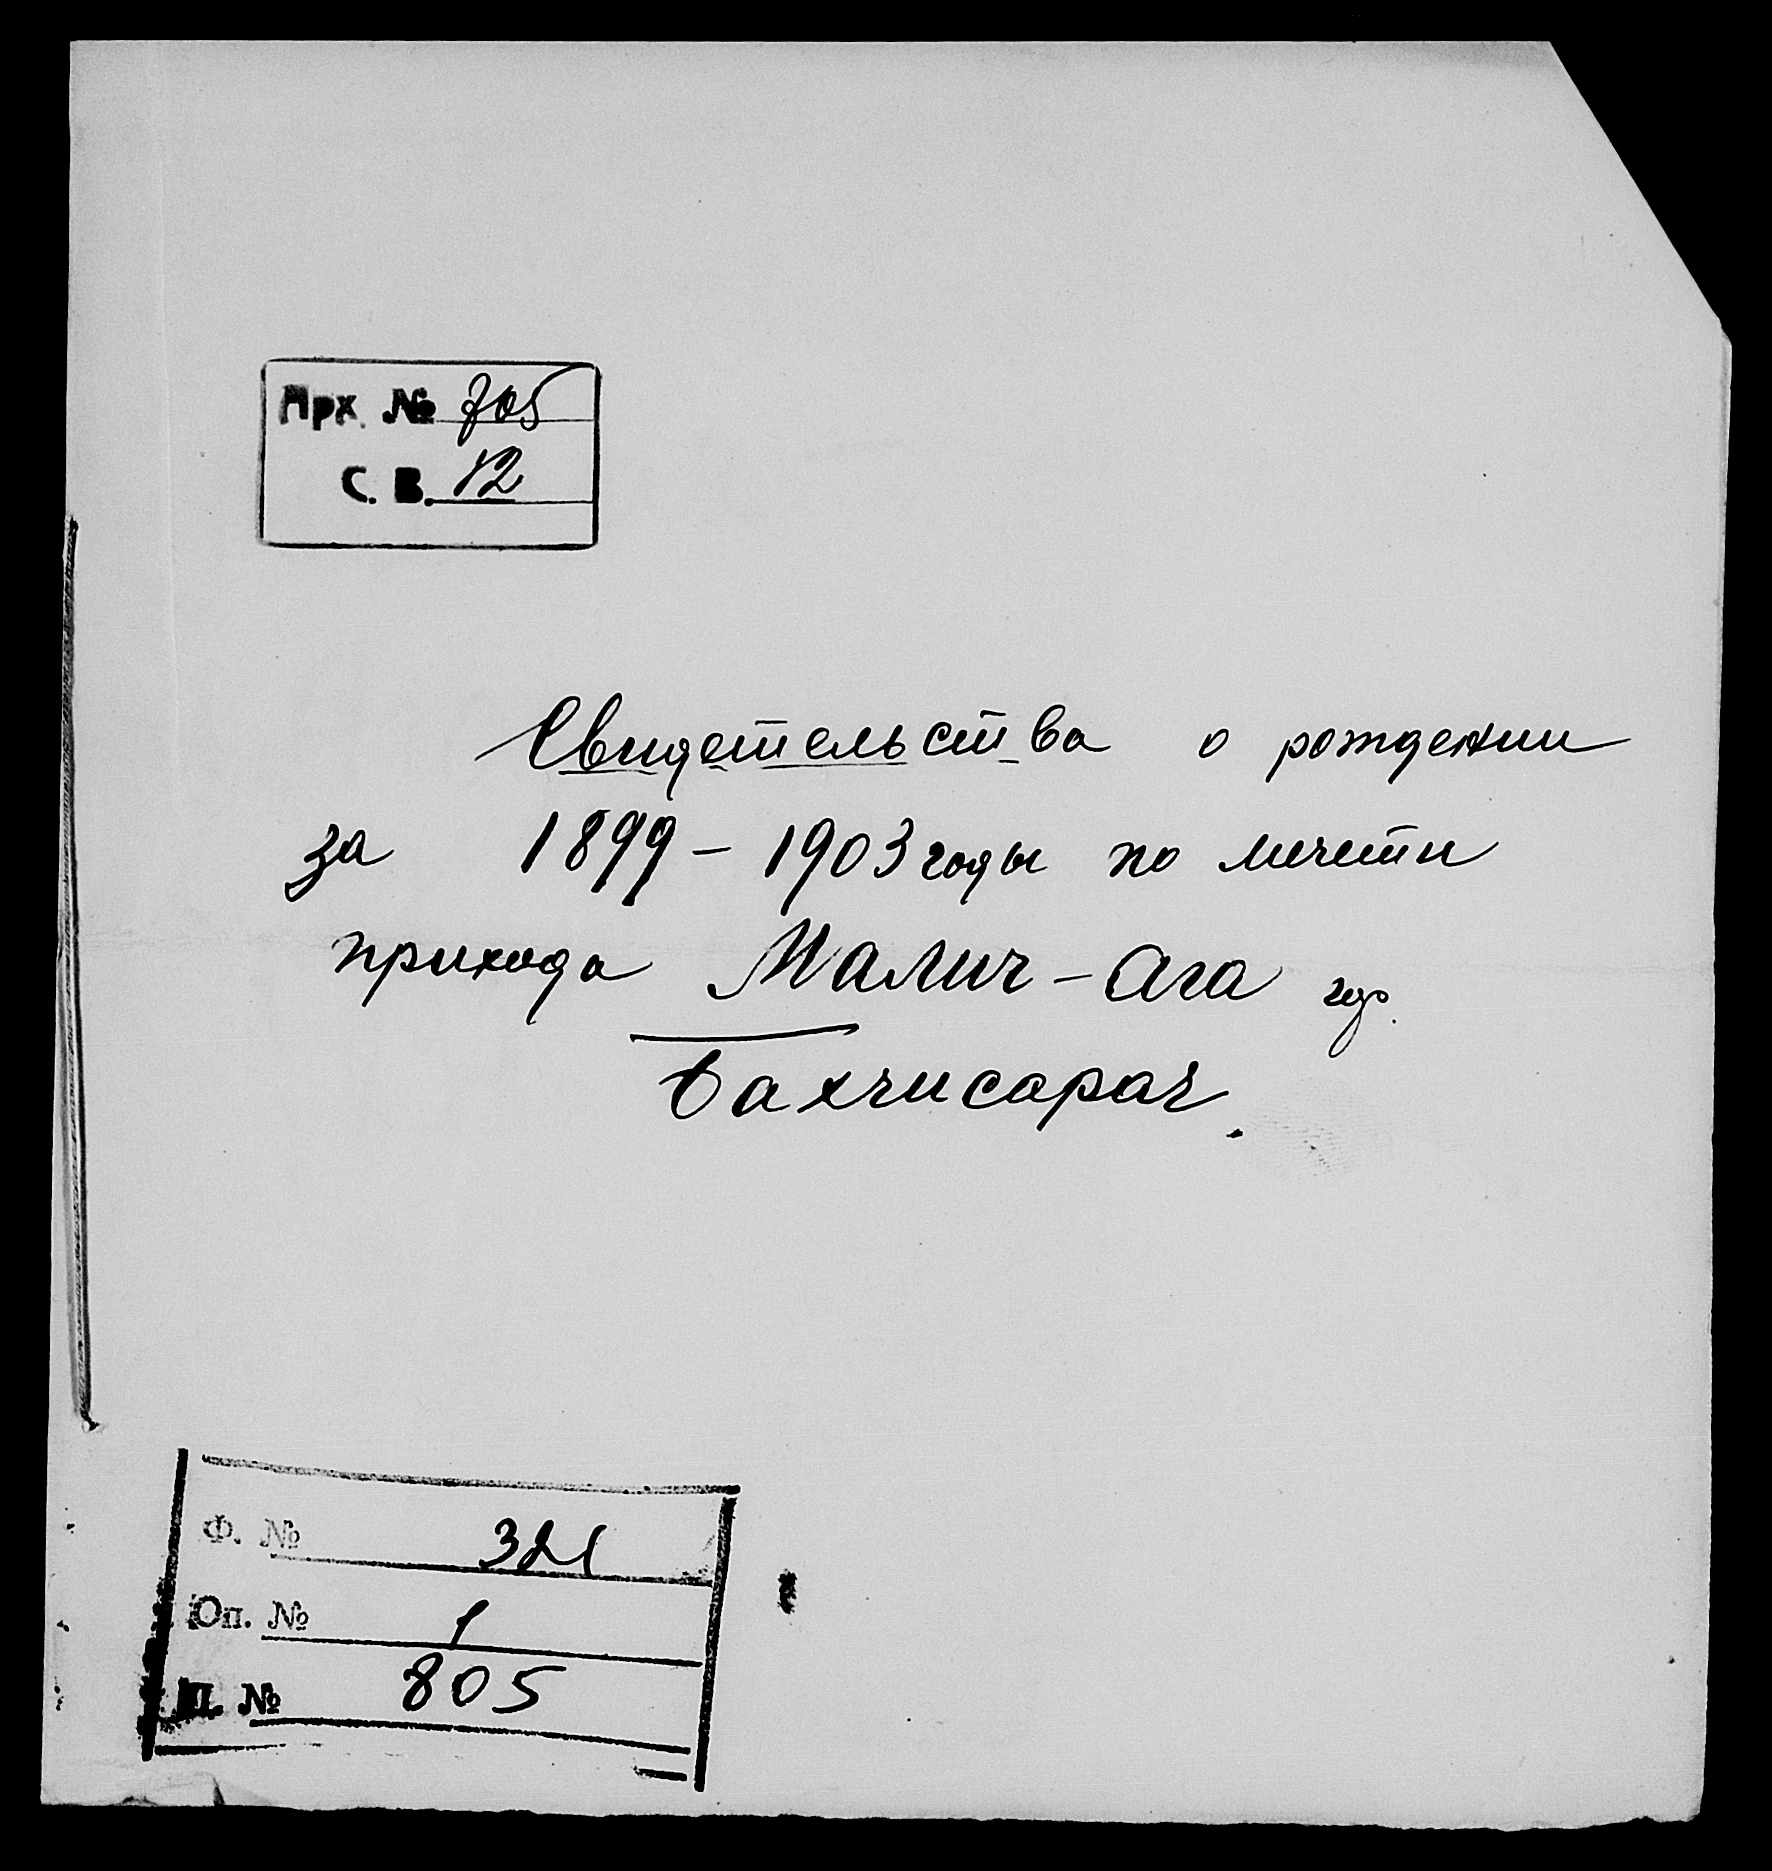 Арх. № 805
С. В. 12
Свидетельства о рождении
за 1899 – 1903 годы по мечети
прихода Малич – Ага гор.
Бахчисарай.
Ф. № 321
Оп. № 1
Д. № 805